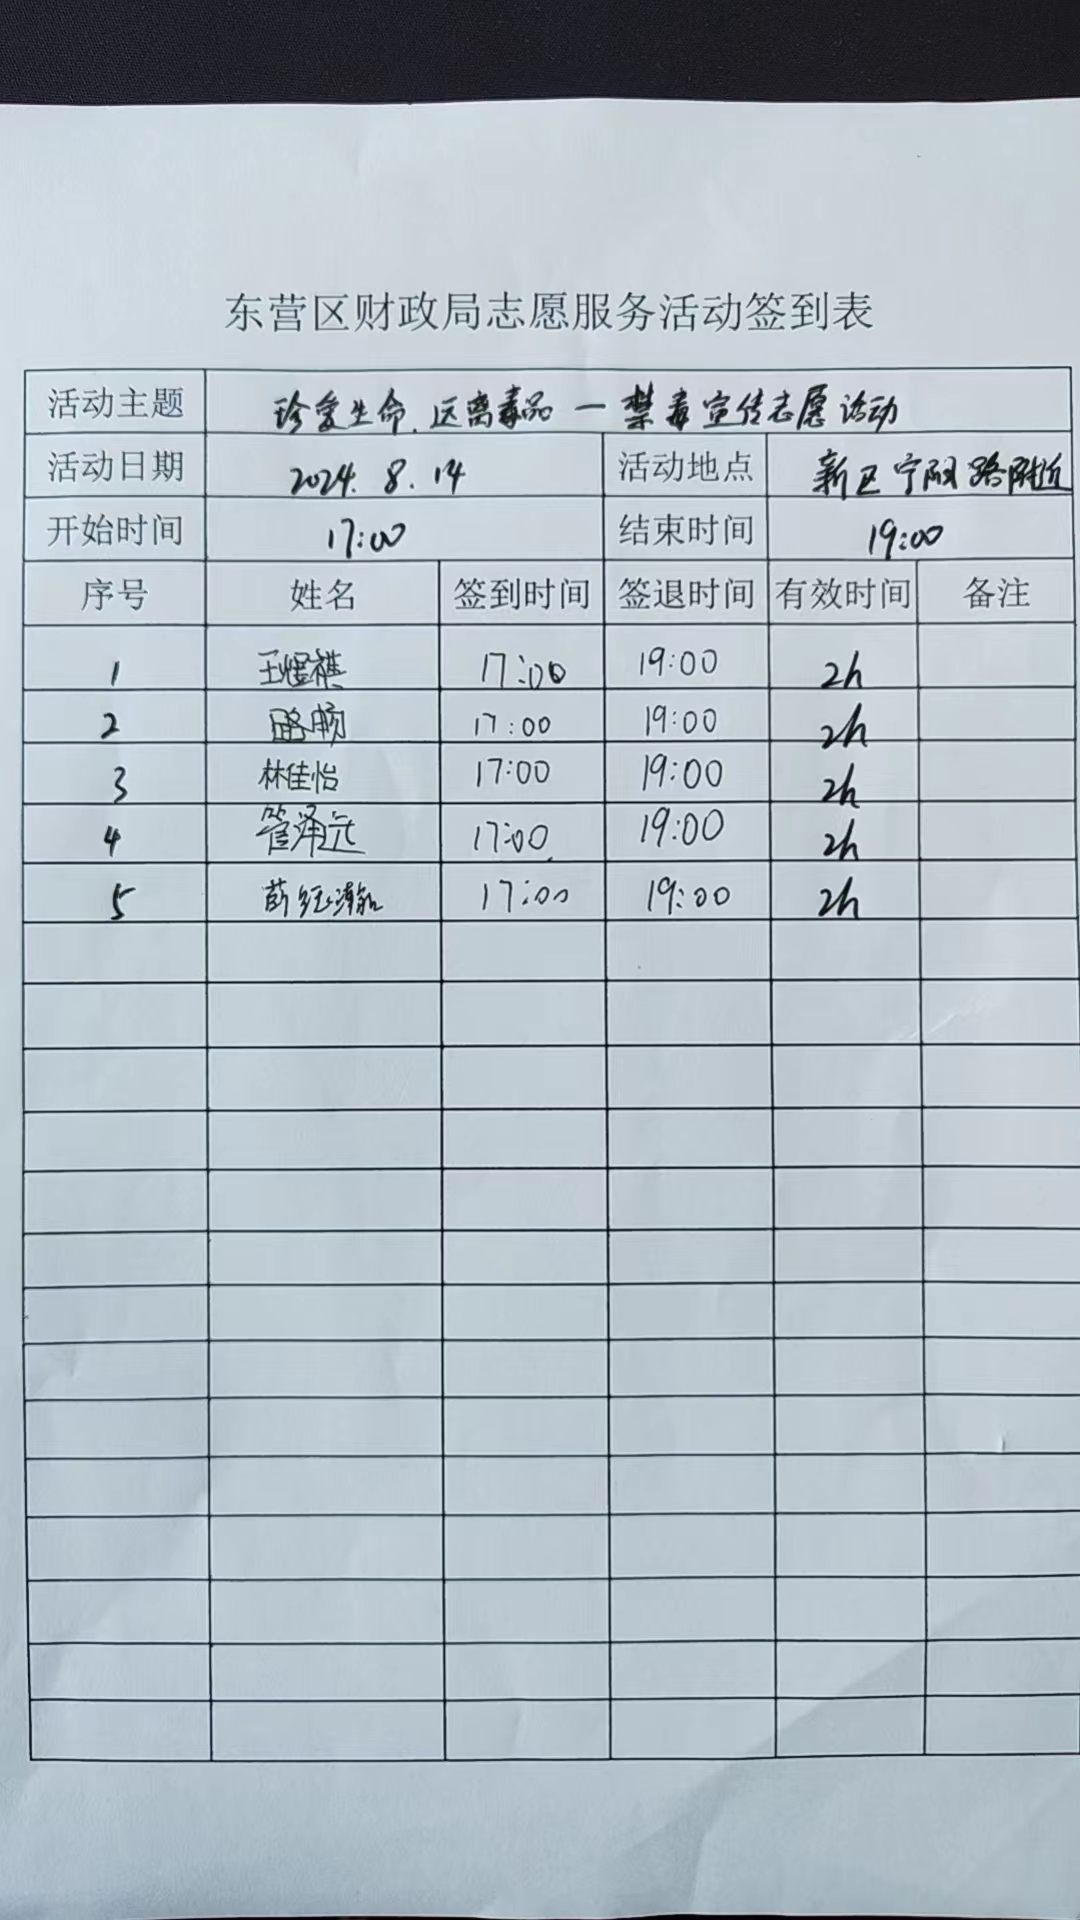 东营区财政局志愿服务活动签到表
活动主题 珍爱生命.远离毒品—禁毒宣传志愿活动
活动日期 2024.8.14 活动地点 新区宁阳路附近
开始时间 17:00 结束时间 19:00
序号 姓名 签到时间 签退时间 有效时间 备注
1 王煜祺 17:00 19:00 2h
2 畅 17:00 19:00 2h
3 林佳怡 17:00 19:00 2h
4 管泽远 17:00 19:00 2h
5 薛钰瀚 17:00 19:00 2h